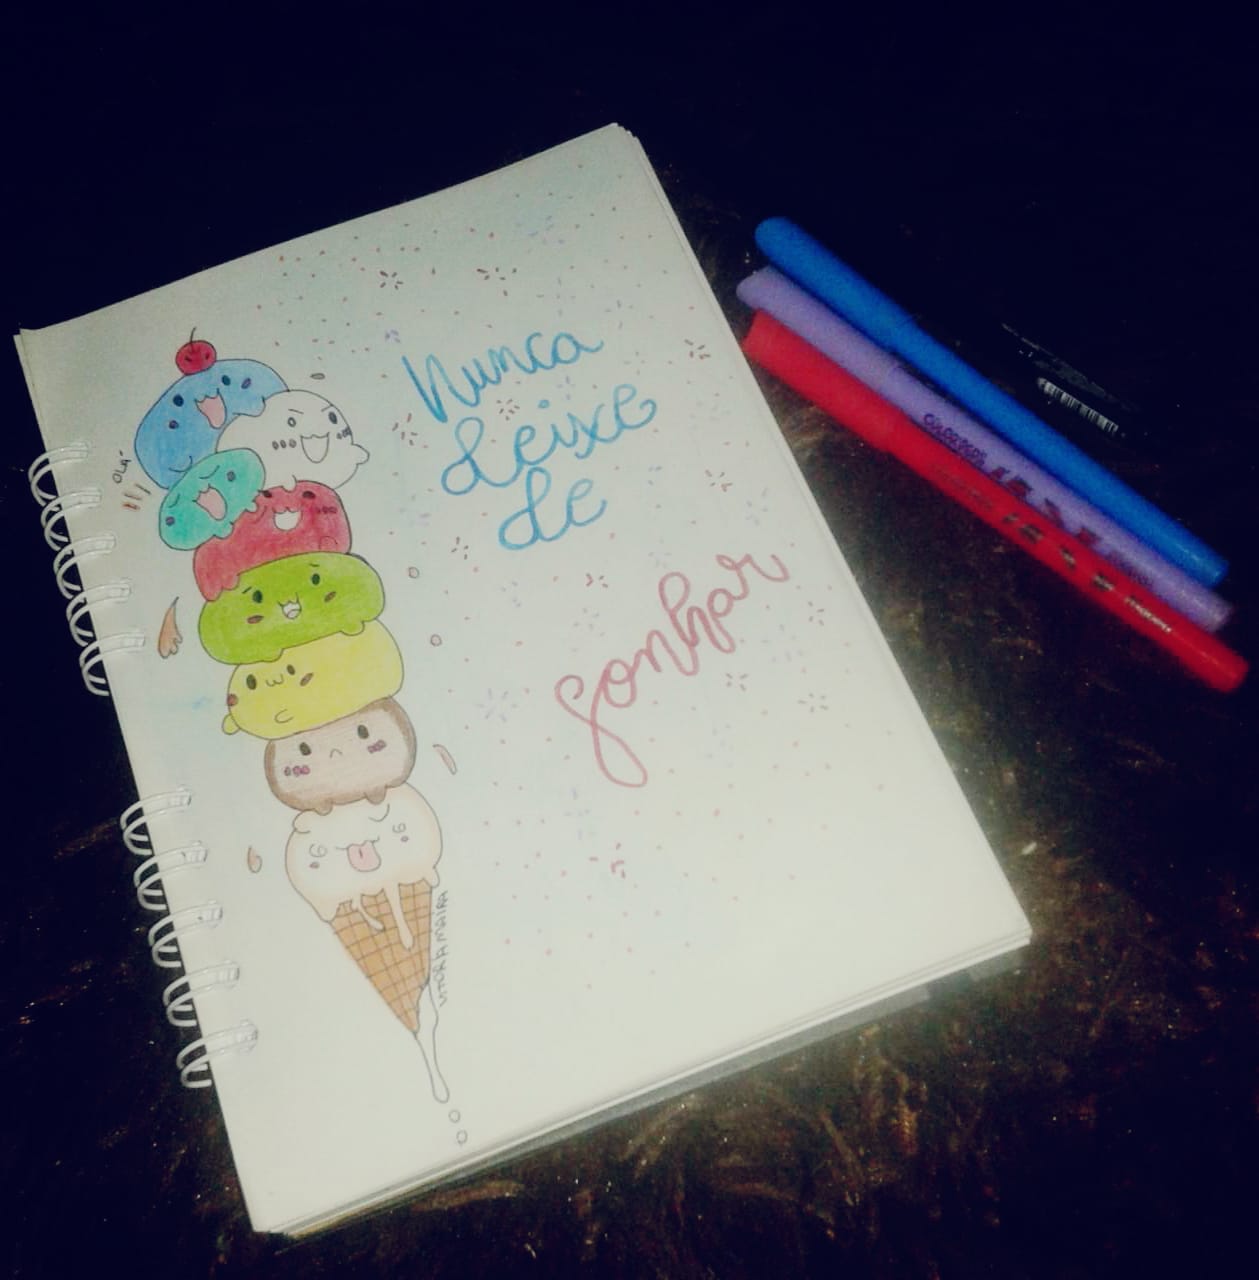 Nunca
deixe
de
sonhar
OLÁ
VITÓRIA MAÍRA